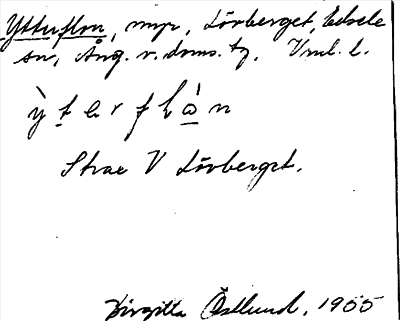 Ytterflon, myr, Lövberget, Eckele
sn, Ång. v. doms. tg. Vml. l.
ỳ t e r f l ò n
Strax V Lövberget.
Birgitta Östlund, 1955